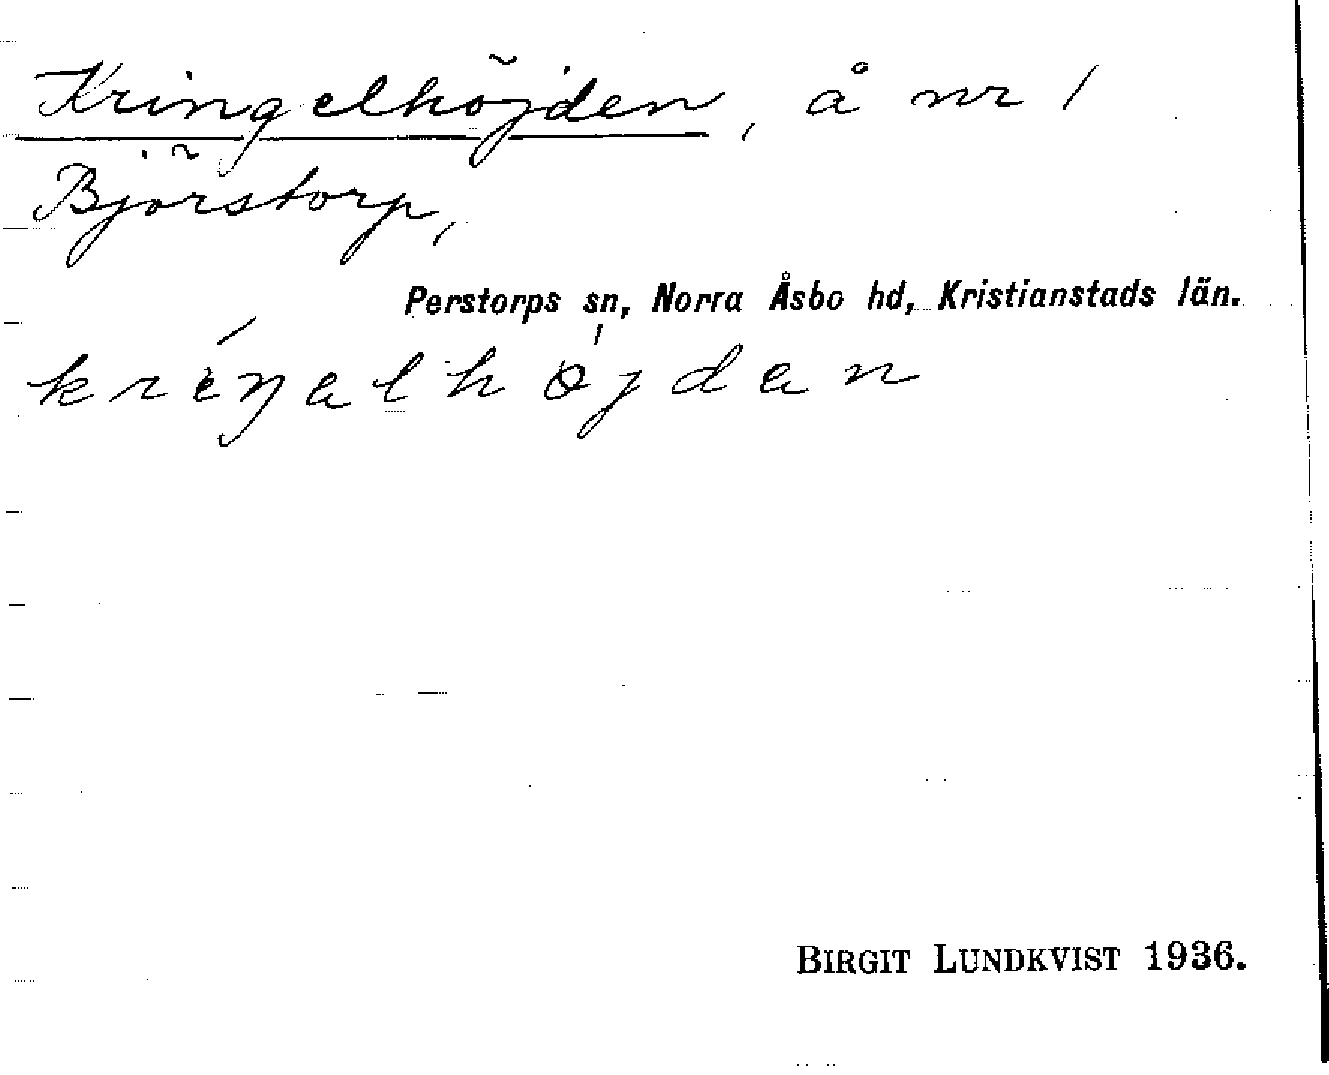 Kringelhöjden, å nr 1
Björstorp,
Perstorps sn, Norra Åsbo hd, Kristianstads län.
BIRGIT LUNDKVIST 1936.